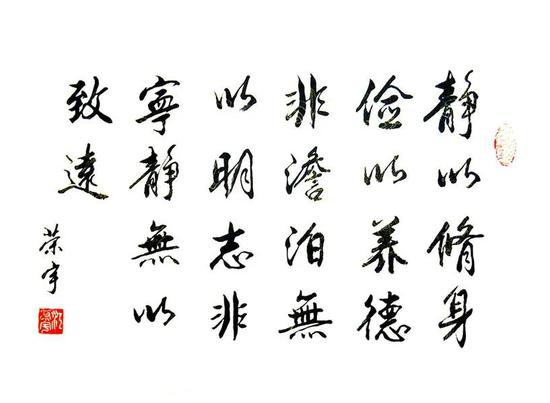 靜以脩身
儉以养德
非澹泊無
以明志非
寧靜無以
致遠
荣宇